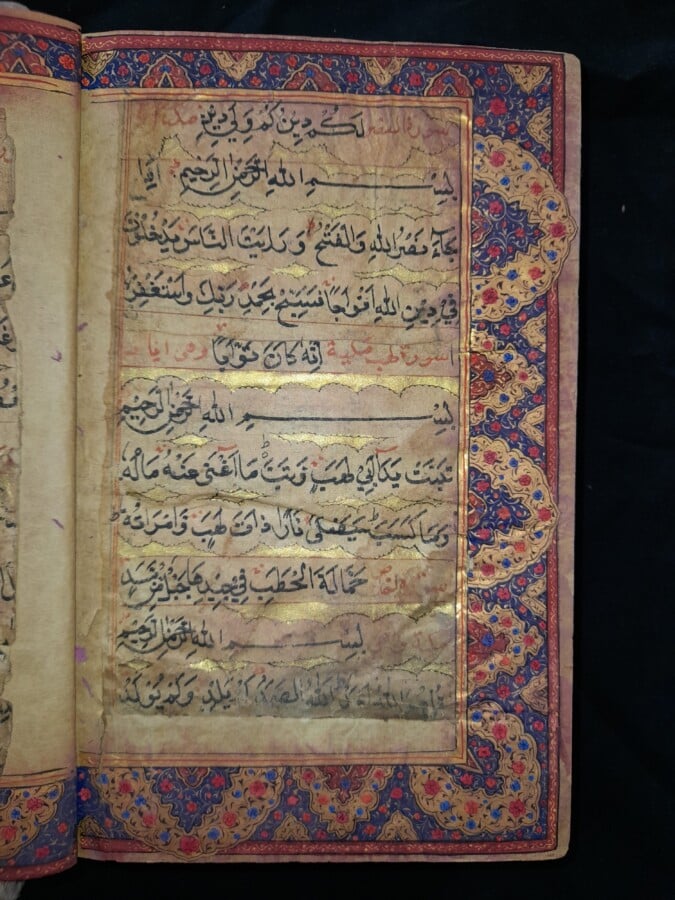 لكم دينكم ولي دين سورة
بسم الله الرحمن الرحيم اذا
جاء نصر الله والفتح ورايت الناس يدخلون
في دين الله افواجا فسبح بحمد ربك واستغفره
انه كان توابا سورة لهب مكية وهى
بسم الله الرحمن الرحيم
تبت يدا ابي لهب وتب ما اغنى عنه ماله
وما كسب سيصلى نارا ذات لهب وامراته
حمالة الحطب في جيدها حبل من مسد
بسم الله الرحمن الرحيم
الله الصمد لم يلد ولم يولد